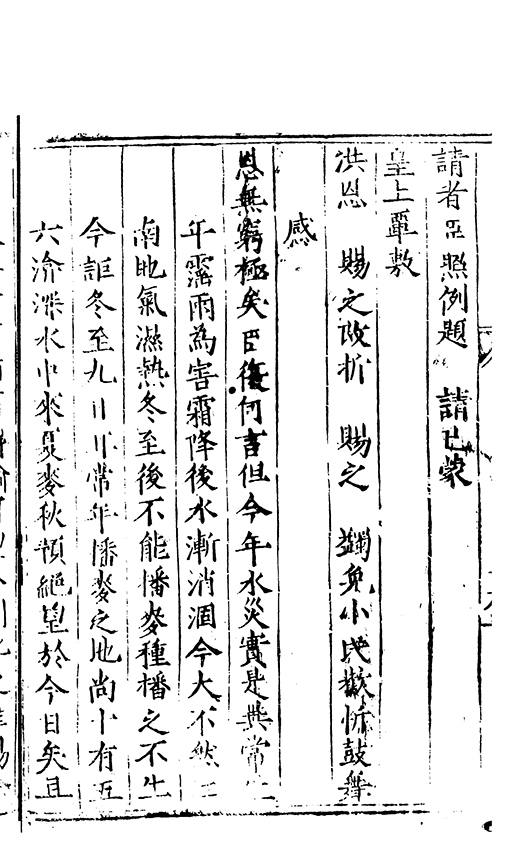 請者臣照例題 請已蒙
皇上覃敷
洪恩 賜之改折 賜之 蠲免小民歡忻鼓舞
感
恩無窮極矣臣復何言但今年水災實是異常
年霪雨為害霜降後水漸消涸今大不然
南地氣濕熱冬至後不能播麥種播之不生
今詎冬至九日耳常年播麥之地尚十有五
六渰深水中來夏麥秋頓絕望於今日矣且